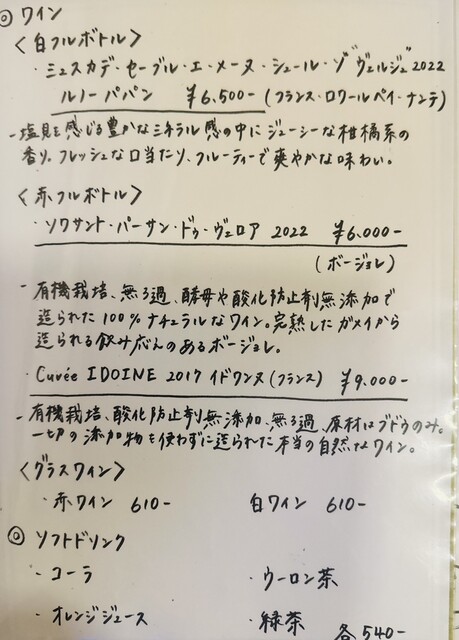 ◎ ワイン
〈白フルボトル〉
・ミュスカデ・セーブル・エ・メーヌ・シュール・ゾ"ヴェルジュ"2022
ルノーパパン ¥6.500-(フランス・ロワールペイ・ナンテ)
-塩見を感じる豊かなミネラル感の中にジューシーな柑橘系の
香り。フレッシュな口当たり、フルーティーで爽やかな味わい。
〈赤フルボトル〉
・ソワサント・パーサン・ドゥ・ヴェロア 2022 ¥6.000-
(ボージョレ)
- 有機栽培、無ろ過、酵母や酸化防止剤無添加で
造られた100%ナチュラルなワイン。完熟したガメイから
造られる飲み応えのあるボージョレ。
・Cuvée IDOINE 2017 イドワンヌ(フランス) ¥9.000-
-有機栽培、酸化防止剤無添加、無ろ過、原材はブドウのみ。
一切の添加物を使わずに造られた本当の自然なワイン。
〈グラスワイン〉
・赤ワイン 610- 白ワイン 610-
◎ ソフトドリンク
・コーラ ・ウーロン茶
・オレンジジュース ・緑茶
各540-